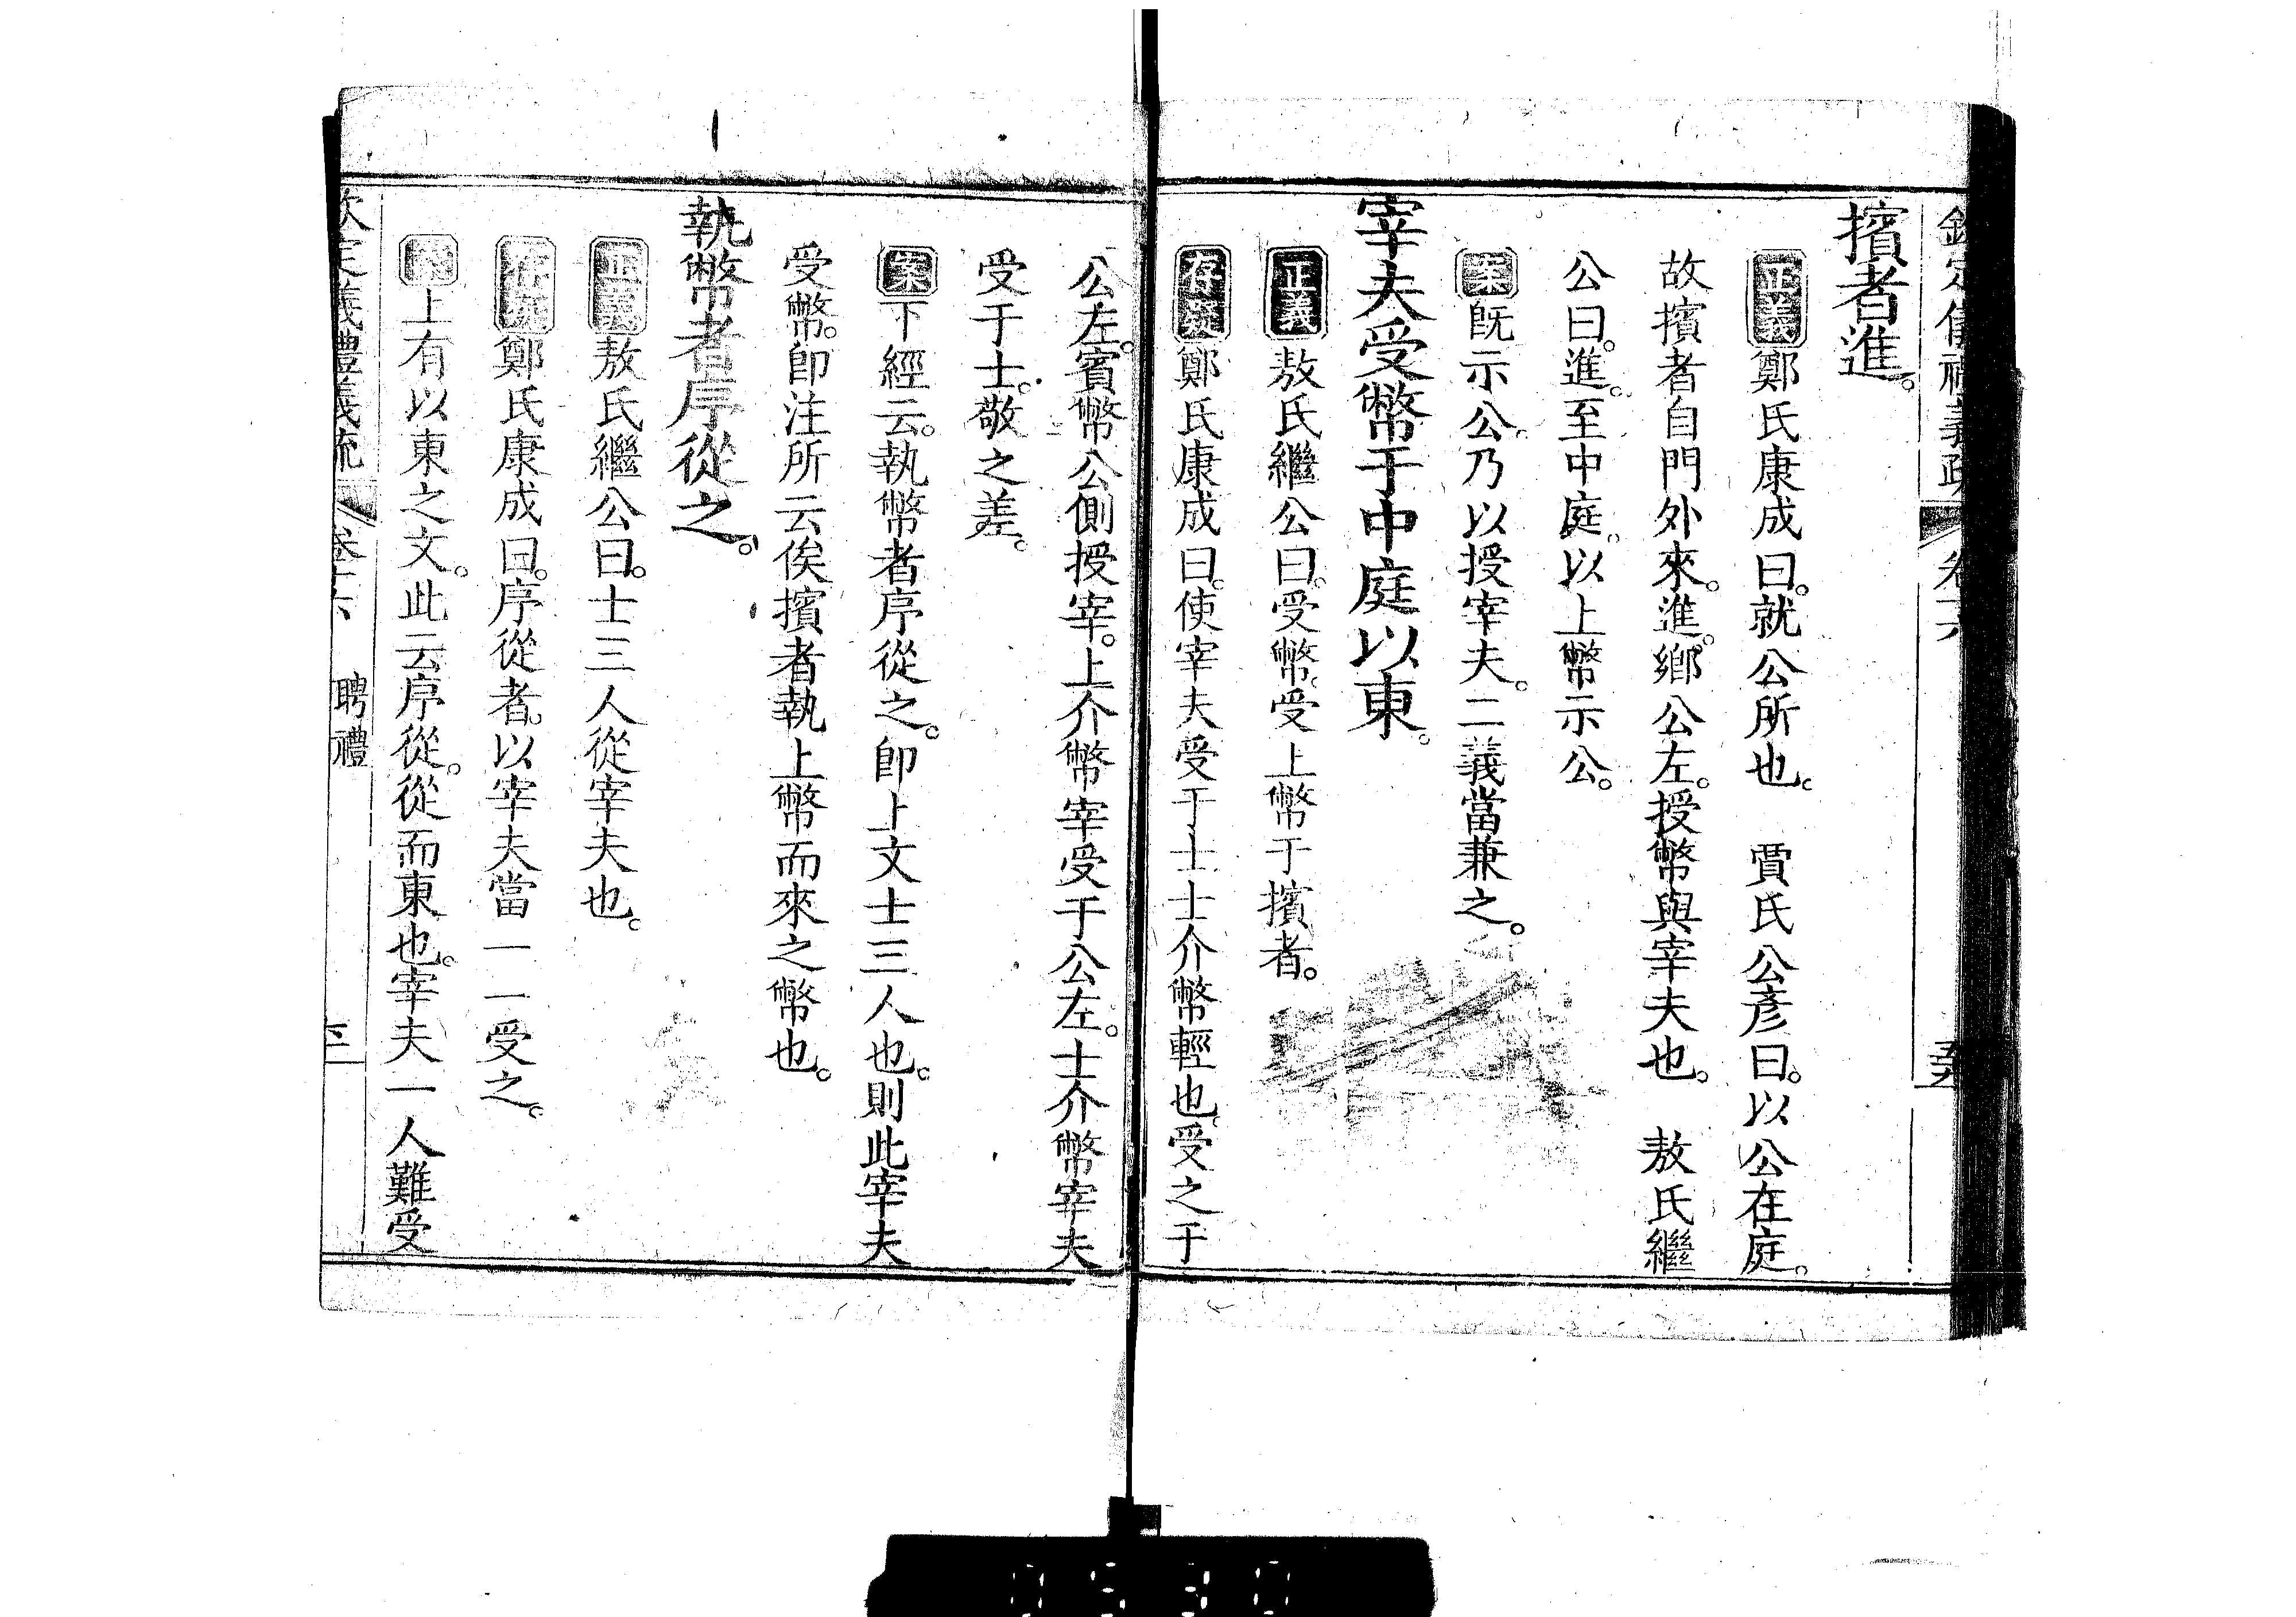 擯者進。
正義鄭氏康成曰。就公所也。 賈氏公彥曰。以公在庭。
故擯者自門外來。進。鄉公左。授幣與宰夫也。 敖氏繼
公曰。進。至中庭。以上幣示公。
案既示公。乃以授宰夫。二義當兼之。
宰夫受幣于中庭以東。
正義敖氏繼公曰。受幣。受上幣于擯者。
存疑鄭氏康成曰。使宰夫受于士。士介幣輕也。受之于
公左。賓幣公側授宰。上介幣宰受于公左。士介幣宰夫
受于士。敬之差。
案下經云。執幣者序從之。卽上文士三人也。則此宰夫
受幣。卽注所云俟擯者執上幣而來之幣也。
執幣者序從之。
正義敖氏繼公曰。士三人從宰夫也。
存疑鄭氏康成曰。序從者。以宰夫當一一受之。
案上有以東之文。此云序從。從而東也。宰夫一人難受
欽定義禮義疏 卷十六 聘禮